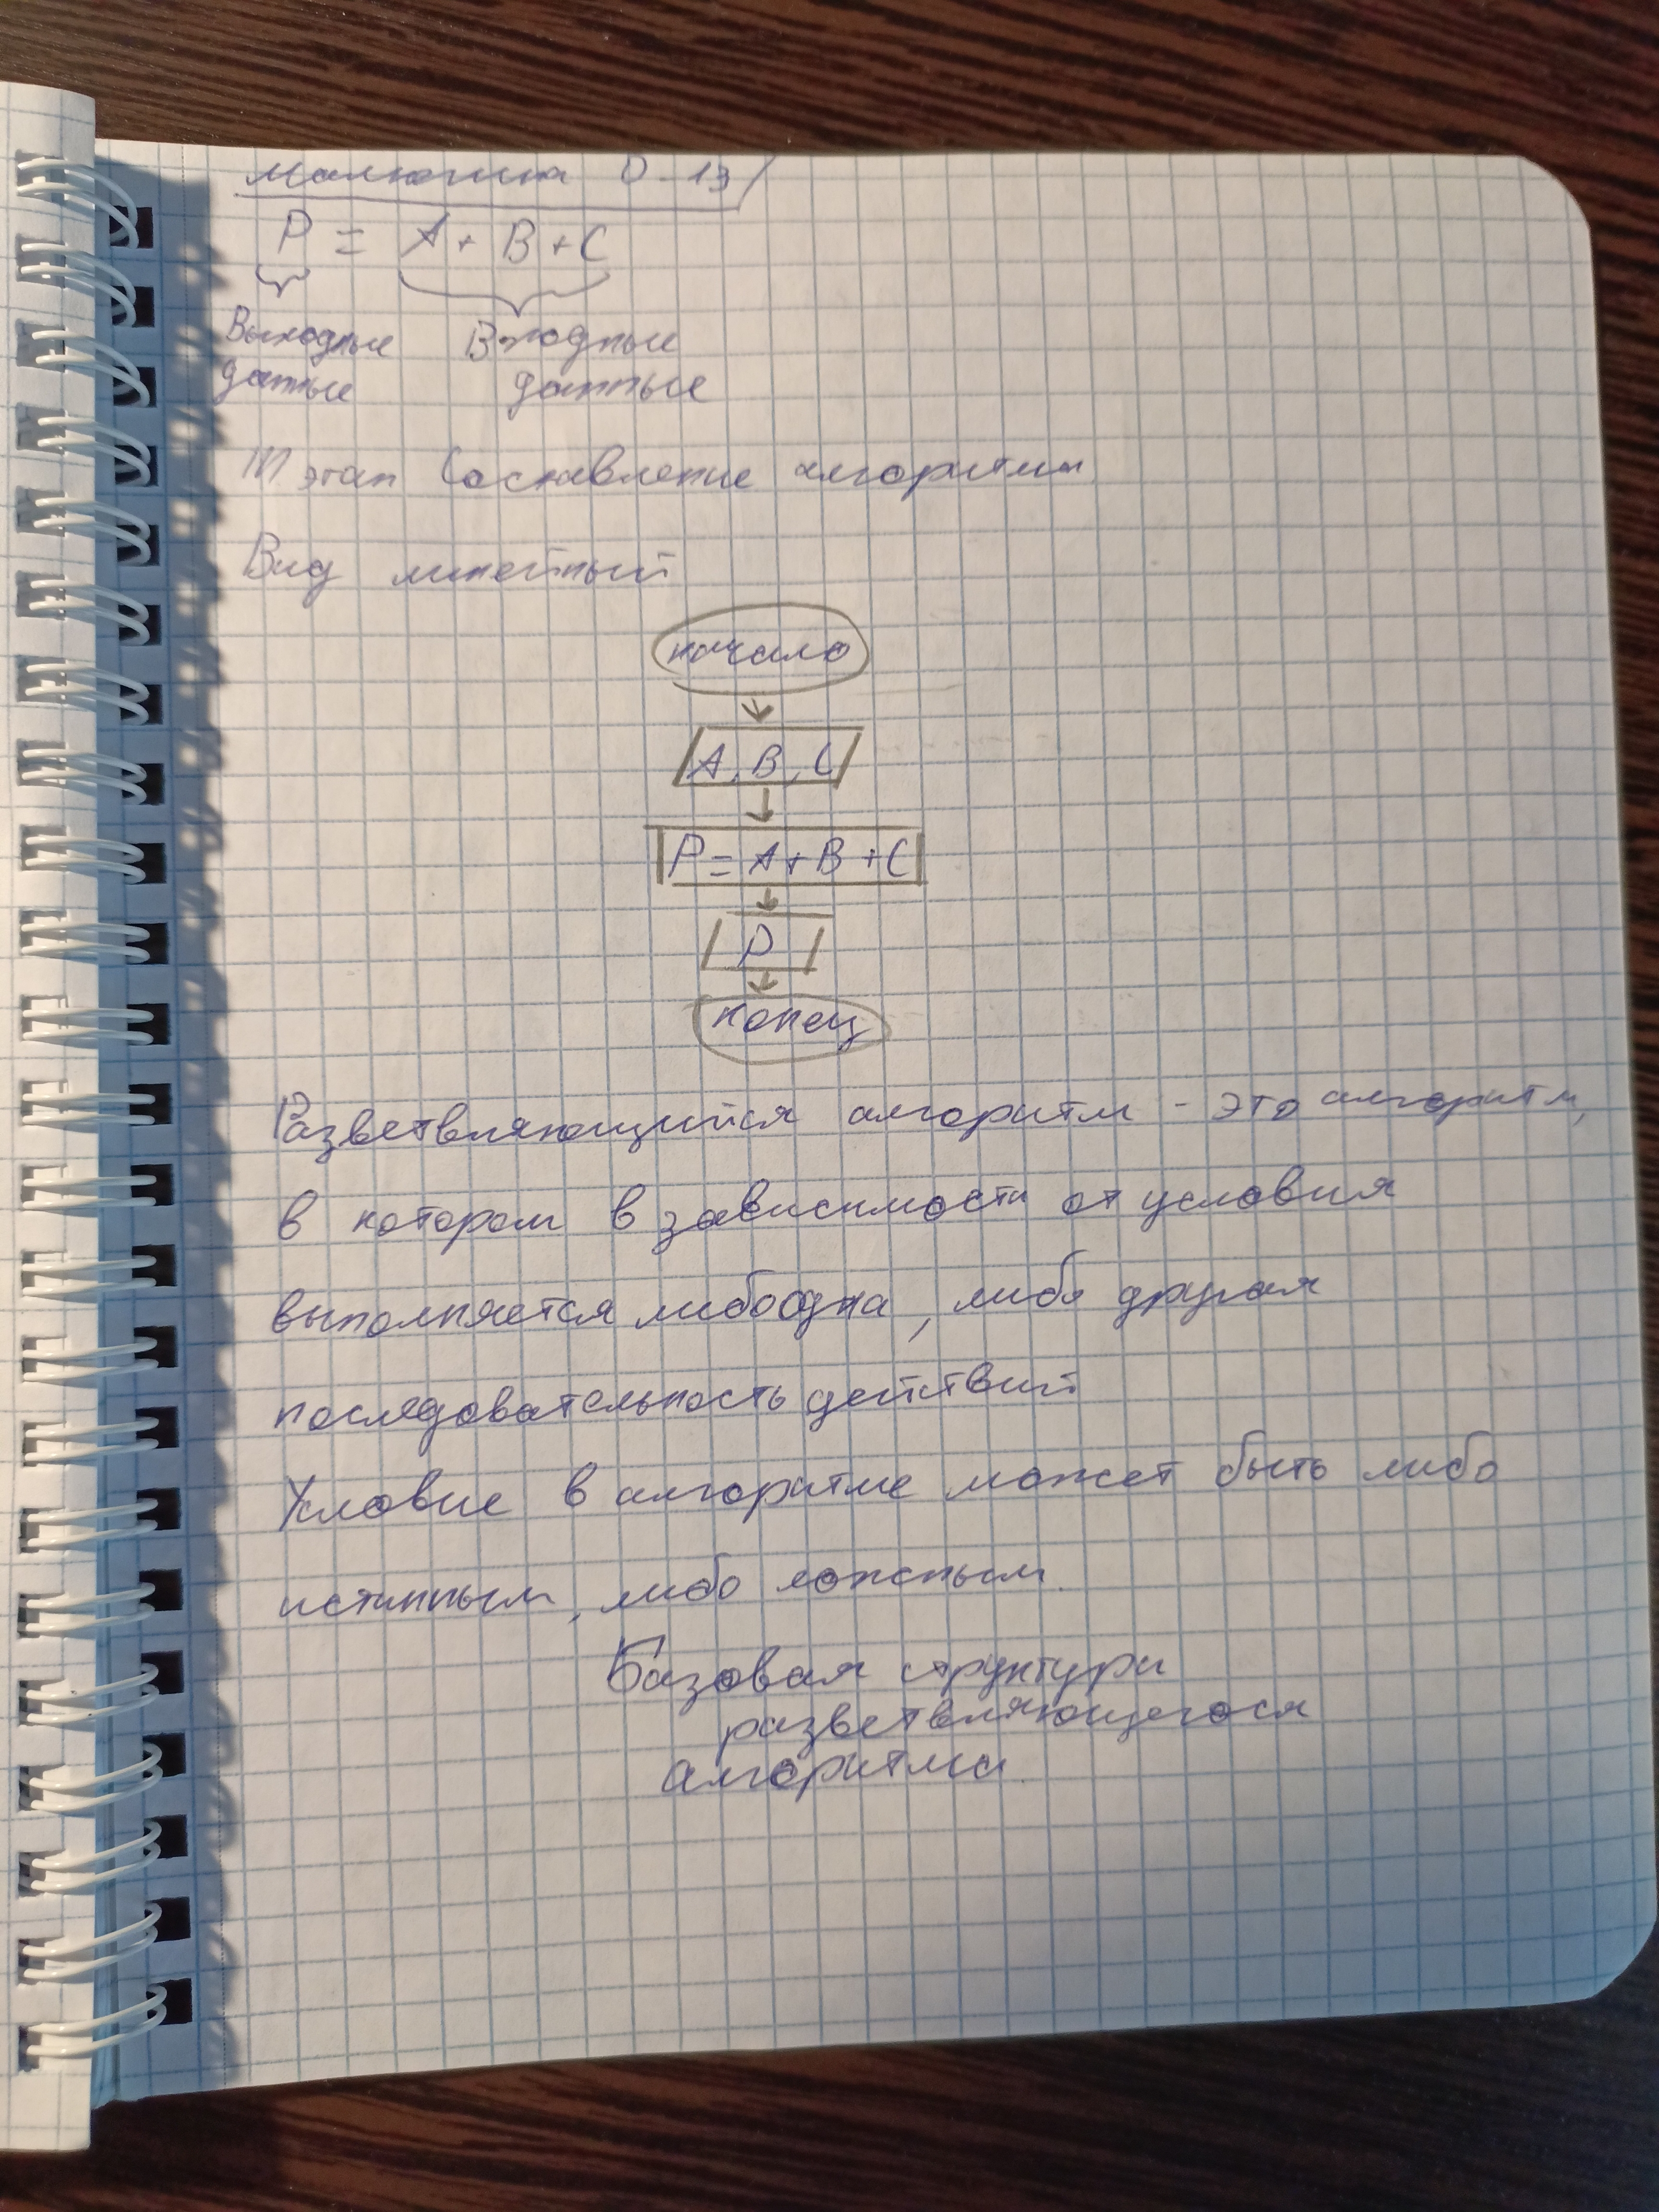 Малютина О-13
P = A + B + C
Выходные Входные
данные данные
III этап Составление алгоритма
Вид линейный
начало
A, B, C
P = A + B + C
P
конец
Разветвляющийся алгоритм - это алгоритм,
в котором в зависимости от условия
выполняется либо одна, либо другая
последовательность действий
Условие в алгоритме может быть либо
истинным, либо ложным.
Базовая структура
разветвляющегося
алгоритма.